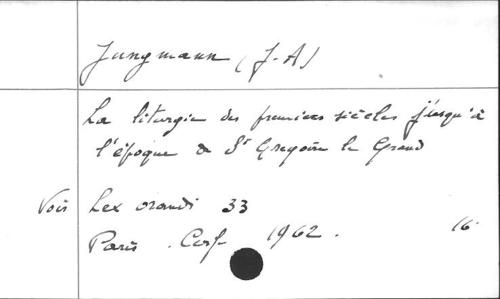 Jungmann (J-A)
La liturgie des premiers siècles jusqu'à
l'époque de St Grégoire le Grand
Voir Lex orandi 33
Paris. Cerf 1962. 16